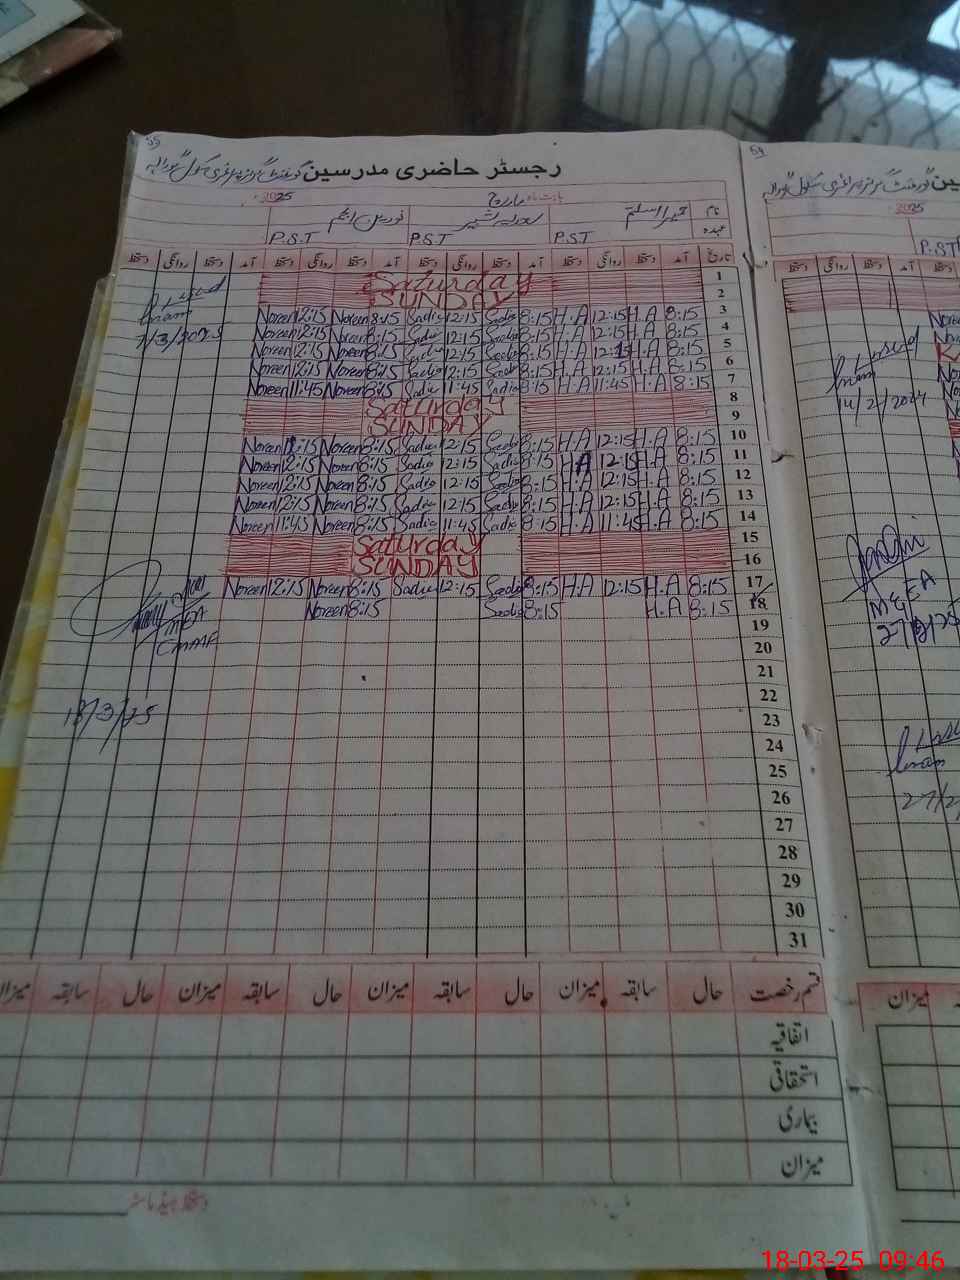 59
رجسٹر حاضری مدرسین گورنمنٹ گرلز پرائمری سکول
بابت ماہ مارچ 2025
نام حمیرا اسلم سعدیہ بشیر نورین انجم
عہدہ P.S.T P.S.T P.S.T
تاریخ آمد دستخط روانگی دستخط آمد دستخط روانگی دستخط آمد دستخط روانگی دستخط آمد دستخط روانگی دستخط
1 Saturday
2 SUNDAY
Noreen 12:15 Noreen 8:15 Sadia 12:15 Sadia 8:15 H.A 12:15 H.A 8:15 3
Noreen 12:15 Noreen 8:15 Sadia 12:15 Sadia 8:15 H.A 12:15 H.A 8:15 4
Noreen 12:15 Noreen 8:15 Sadia 12:15 Sadia 8:15 H.A 12:15 H.A 8:15 5
Noreen 12:15 Noreen 8:15 Sadia 12:15 Sadia 8:15 H.A 12:15 H.A 8:15 6
Noreen 11:45 Noreen 8:15 Sadia 11:45 Sadia 8:15 H.A 11:45 H.A 8:15 7
7/3/2025
Saturday 8
SUNDAY 9
Noreen 12:15 Noreen 8:15 Sadia 12:15 Sadia 8:15 H.A 12:15 H.A 8:15 10
Noreen 12:15 Noreen 8:15 Sadia 12:15 Sadia 8:15 H.A 12:15 H.A 8:15 11
Noreen 12:15 Noreen 8:15 Sadia 12:15 Sadia 8:15 H.A 12:15 H.A 8:15 12
Noreen 12:15 Noreen 8:15 Sadia 12:15 Sadia 8:15 H.A 12:15 H.A 8:15 13
Noreen 11:45 Noreen 8:15 Sadia 11:45 Sadia 8:15 H.A 11:45 H.A 8:15 14
Saturday 15
SUNDAY 16
Noreen 12:15 Noreen 8:15 Sadia 12:15 Sadia 8:15 H.A 12:15 H.A 8:15 17
Noreen 8:15 Sadia 8:15 H.A 8:15 18
MEA
19
20
21
22
18/3/25
23
24
25
26
27
28
29
30
31
قسم رخصت حال سابقہ میزان حال سابقہ میزان حال سابقہ میزان حال سابقہ میزان
اتفاقیہ
استحقاقی
بیماری
میزان
دستخط ہیڈ ماسٹر
59
گورنمنٹ گرلز پرائمری سکول
2025
P.S.T
دستخط روانگی دستخط آمد
14/2/2024
MEA
27/2/25
میزان
18-03-25 09:46